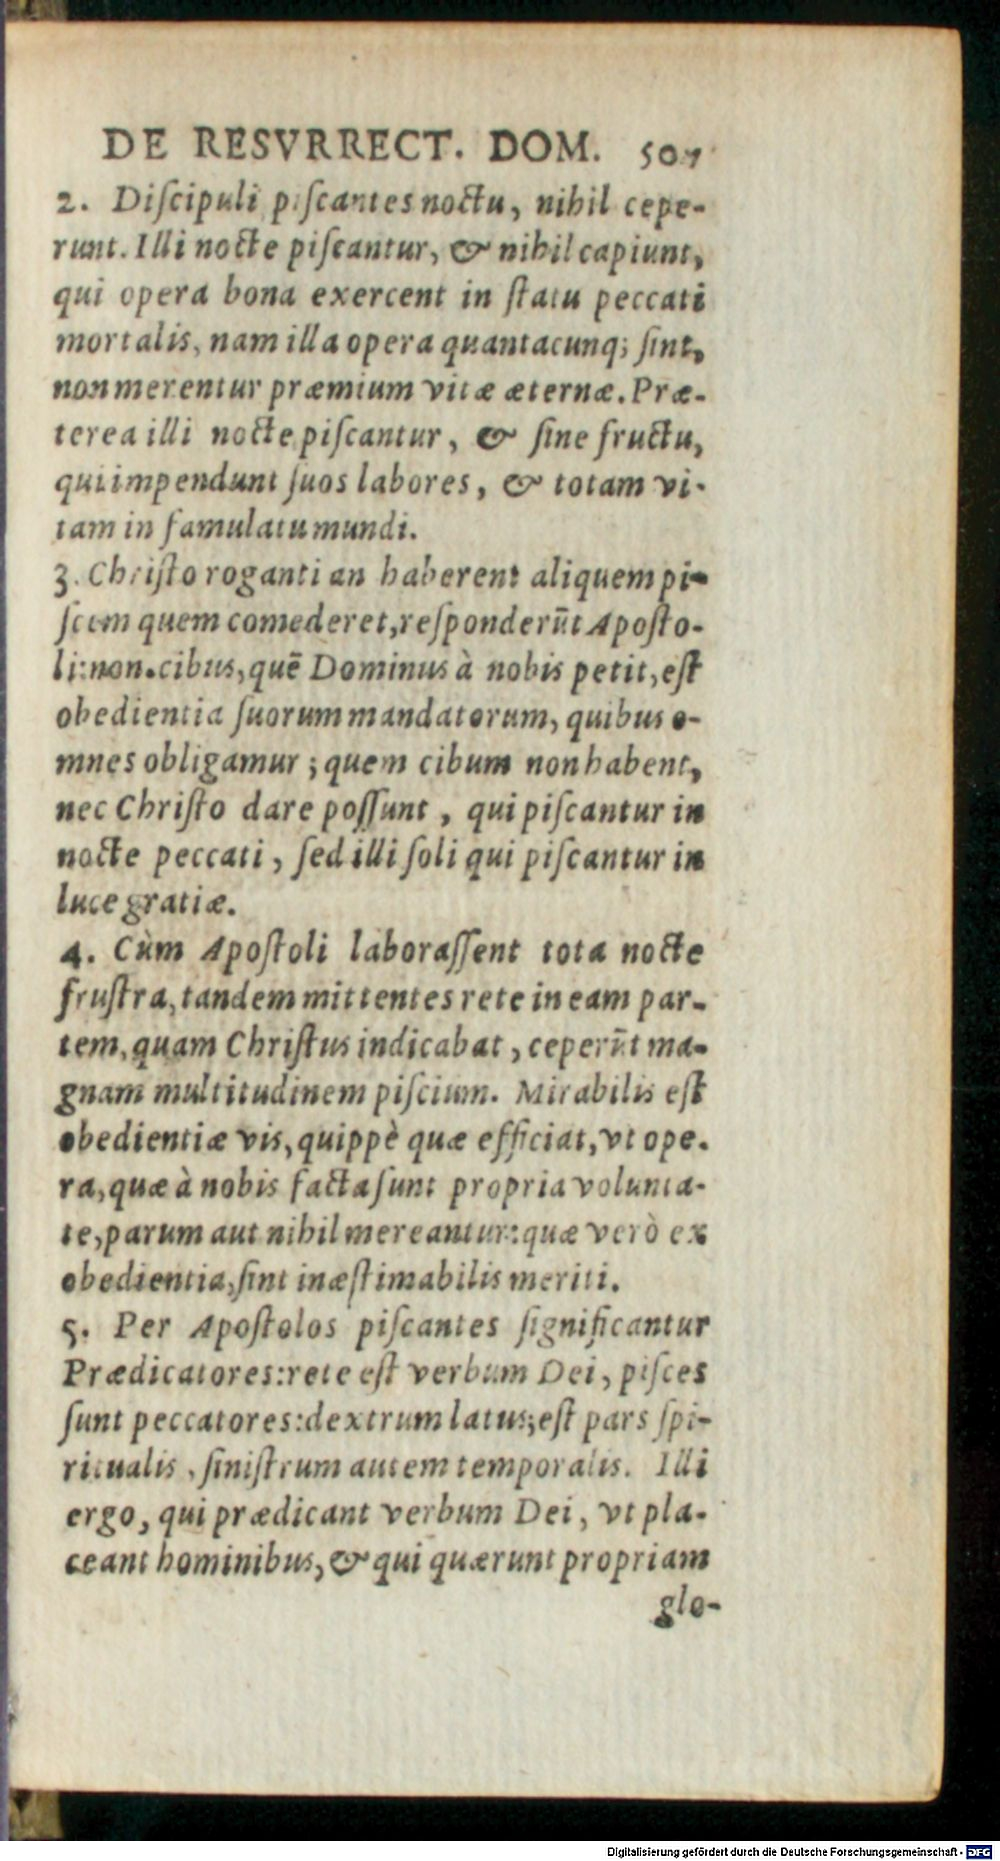 DE RESVRRECT. DOM. 507
2. Diſcipuli piſcantes noctu, nihil cepe-
runt. Illi nocte piſcantur, & nihil capiunt,
qui opera bona exercent in ſtatu peccati
mortalis, nam illa opera quantacunq; ſint,
non merentur præmium vitæ æternæ. Præ-
terea illi nocte piſcantur, & ſine fructu,
qui impendunt ſuos labores, & totam vi-
tam in famulatu mundi.
3. Chriſto roganti an haberent aliquem pi-
ſcem quem comederet, reſponderũt Apoſto-
li: non. cibus, quẽ Dominus à nobis petit, eſt
obedientia ſuorum mandatorum, quibus o-
mnes obligamur; quem cibum non habent,
nec Chriſto dare poſſunt, qui piſcantur in
nocte peccati, ſed illi ſoli qui piſcantur in
luce gratiæ.
4. Cùm Apoſtoli laboraſſent tota nocte
fruſtra, tandem mittentes rete in eam par-
tem, quam Chriſtus indicabat, ceperũt ma-
gnam multitudinem piſcium. Mirabilis eſt
obedientiæ vis, quippè quæ efficiat, vt ope-
ra, quæ à nobis facta ſunt propria volunta-
te, parum aut nihil mereantur: quæ verò ex
obedientia, ſint inæſtimabilis meriti.
5. Per Apoſtolos piſcantes ſignificantur
Prædicatores: rete eſt verbum Dei, piſces
ſunt peccatores: dextrum latus; eſt pars ſpi-
ritualis, ſiniſtrum autem temporalis. Illi
ergo, qui prædicant verbum Dei, vt pla-
ceant hominibus, & qui quærunt propriam
glo-
Digitalisierung gefördert durch die Deutsche Forschungsgemeinschaft - DFG